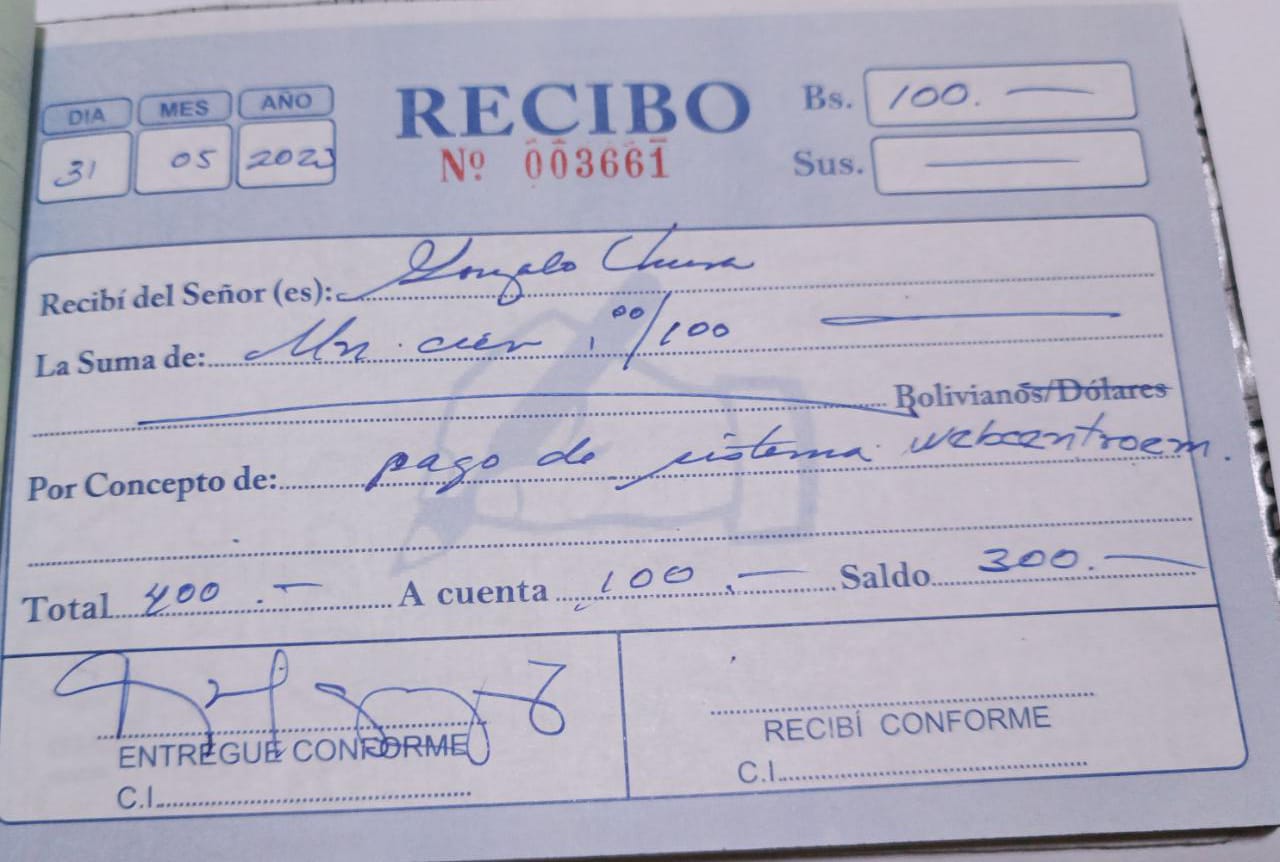 DIA MES AÑO
31 05 2023
RECIBO
Nº 003661
Bs. 100.—
Sus. —
Recibí del Señor (es): Gonzalo
La Suma de: cien 00/100 —
Bolivianos/Dólares
Por Concepto de: pago de sistema webcentroem.
Total 400.— A cuenta 100.— Saldo 300.—
ENTREGUE CONFORME
C.I.
RECIBÍ CONFORME
C.I.